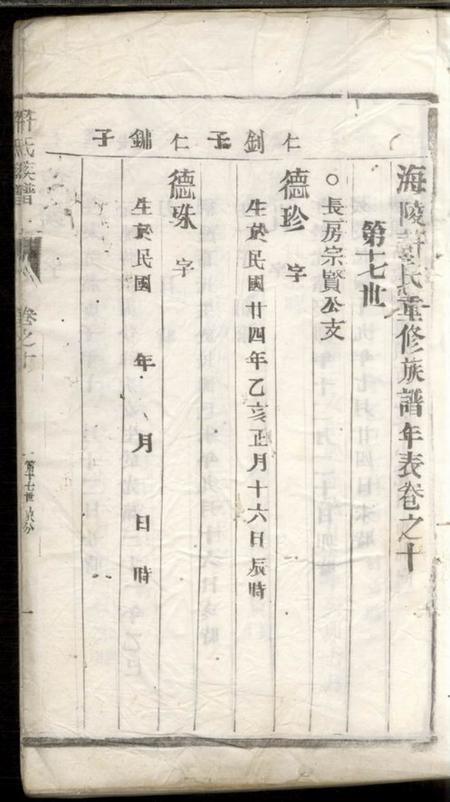 海陵許氏重修族譜年表卷之十
第十七世
○長房宗賢公支
仁釗子
德珍 字
生於民國廿四年乙亥正月十六日辰時
仁鏽子
德珠 字
生於民國 年 月 日 時
許氏族譜
卷之十
一
第十七世